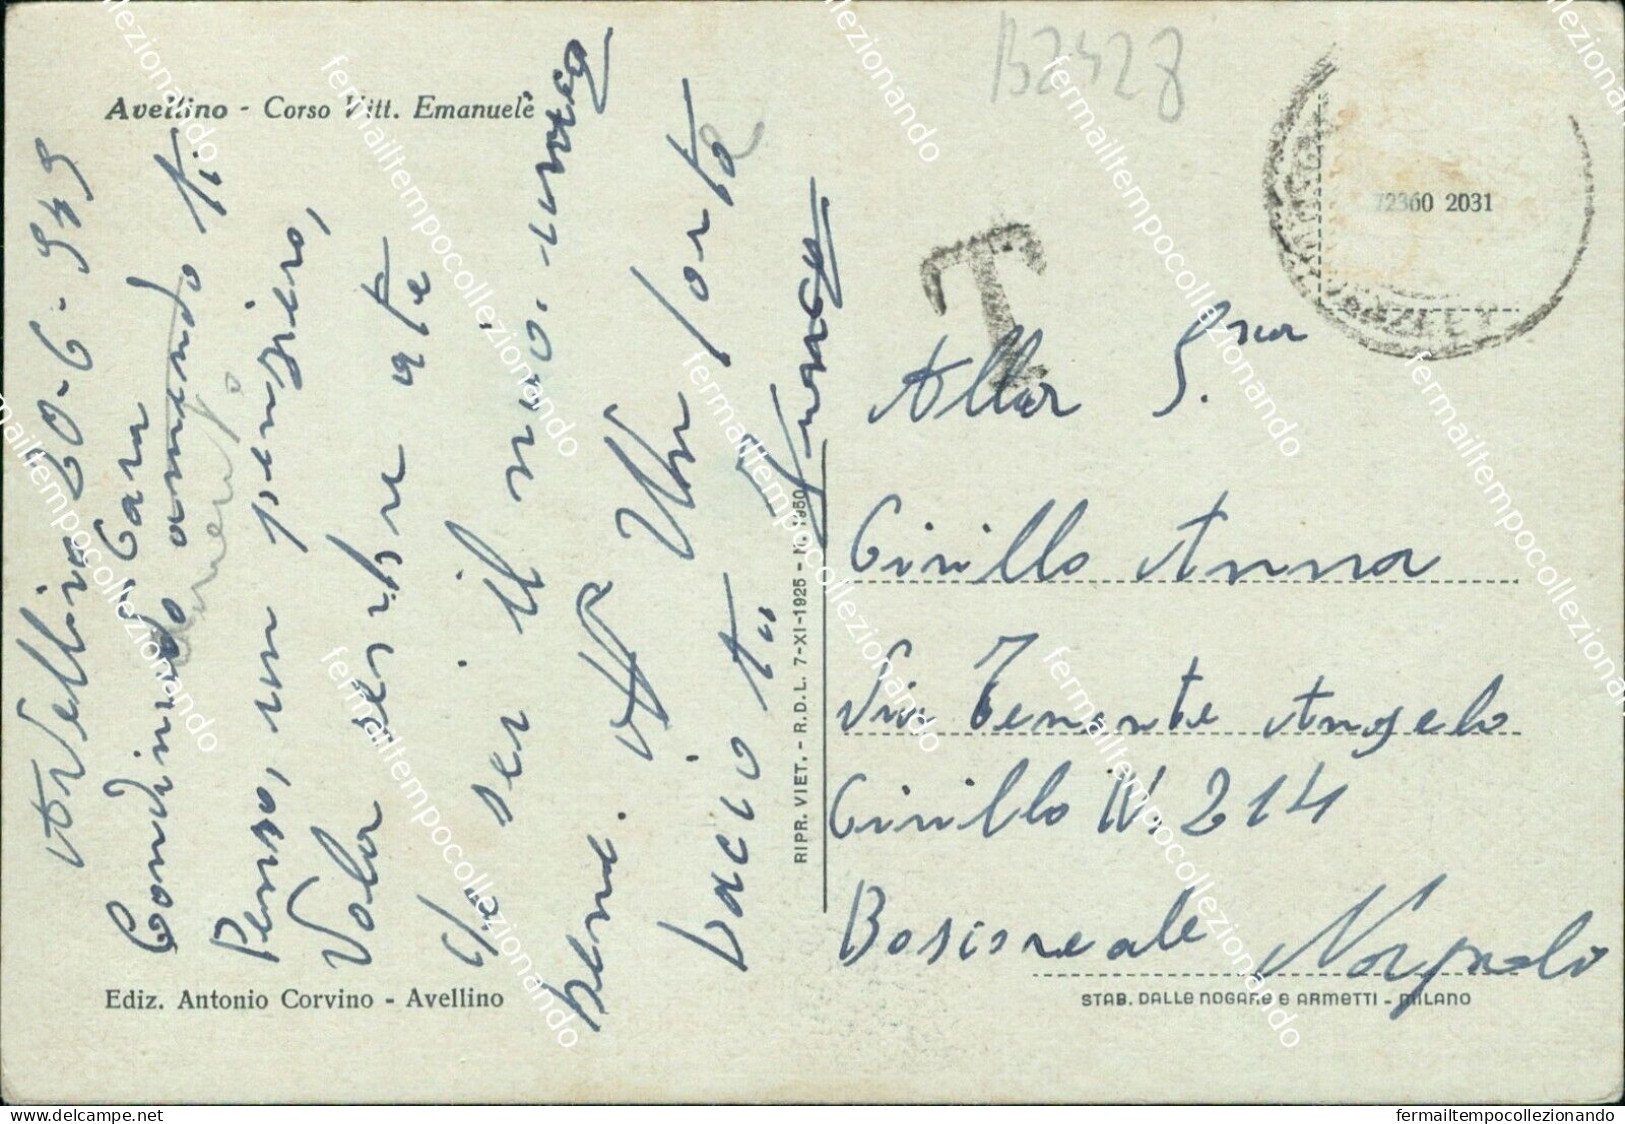 B2428
Avellino - Corso Vitt. Emanuele
Avellino 20-6-949
Cara
ti
Penso, un pensiero,
Vola a te
sei il mio. unico
bene. Un forte
bacio tuo
T
72360 2031
Alla S.na
Cirillo Anna
Via Tenente Angelo
Cirillo N. 214
Boscoreale Napoli
RIPR. VIET. - R.D.L. 7-XI-1925 - N. 1950
Ediz. Antonio Corvino - Avellino
STAB. DALLE NOGARE E ARMETTI - MILANO
delcampe.net
fermailtempocollezionando